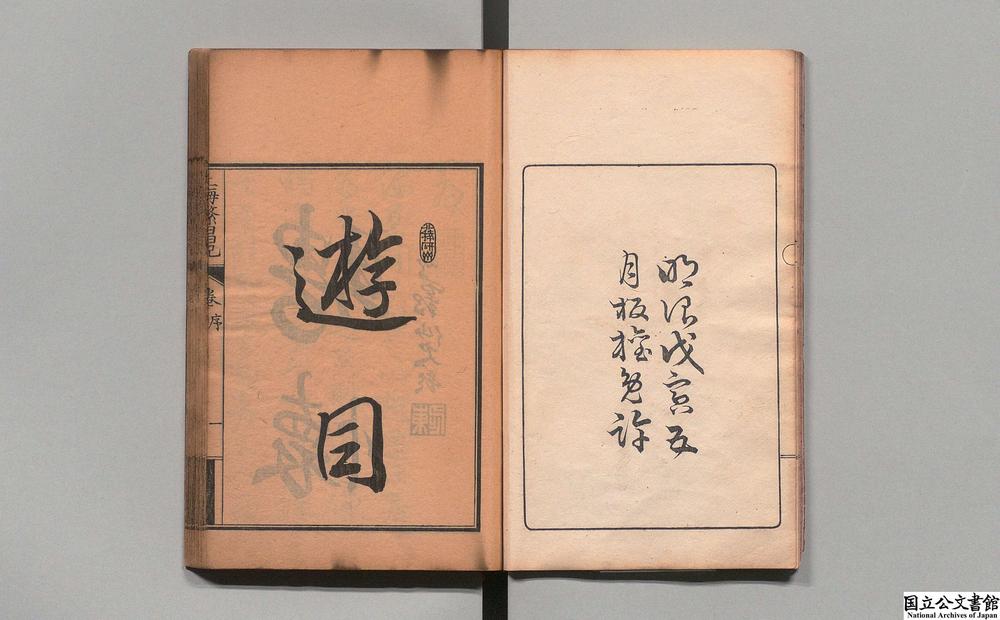 明治戊寅五
月板権免許
遊
目
上海繁昌記
巻序
一
国立公文書館
National Archives of Japan